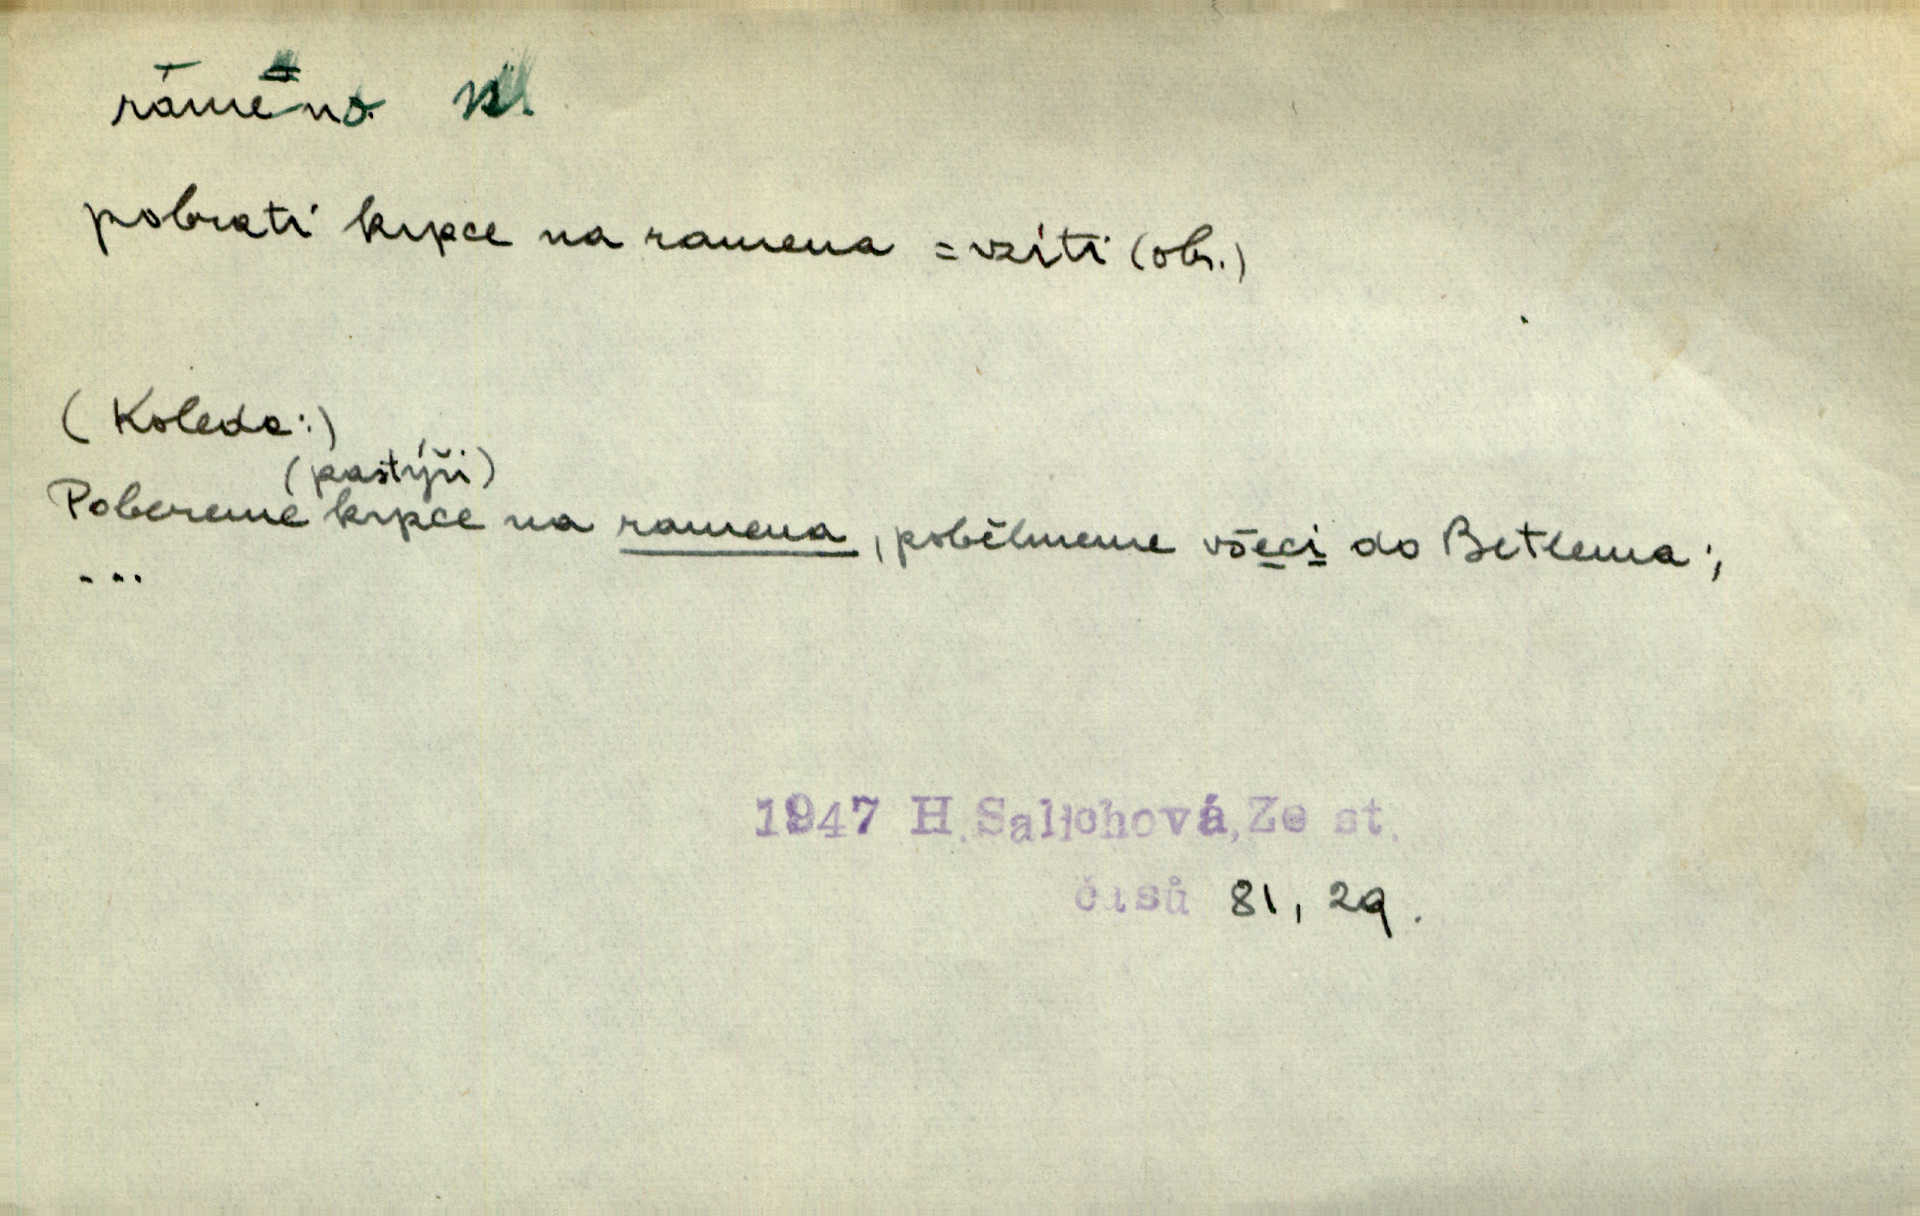 rámeno n.
pobrati krpce na ramena = vzíti (obr.)
(Koleda:)
(pastýři)
Pobereme krpce na ramena, poběhneme všeci do Betlema;
...
1947 H. Salichová, Ze st.
časů 81, 29.